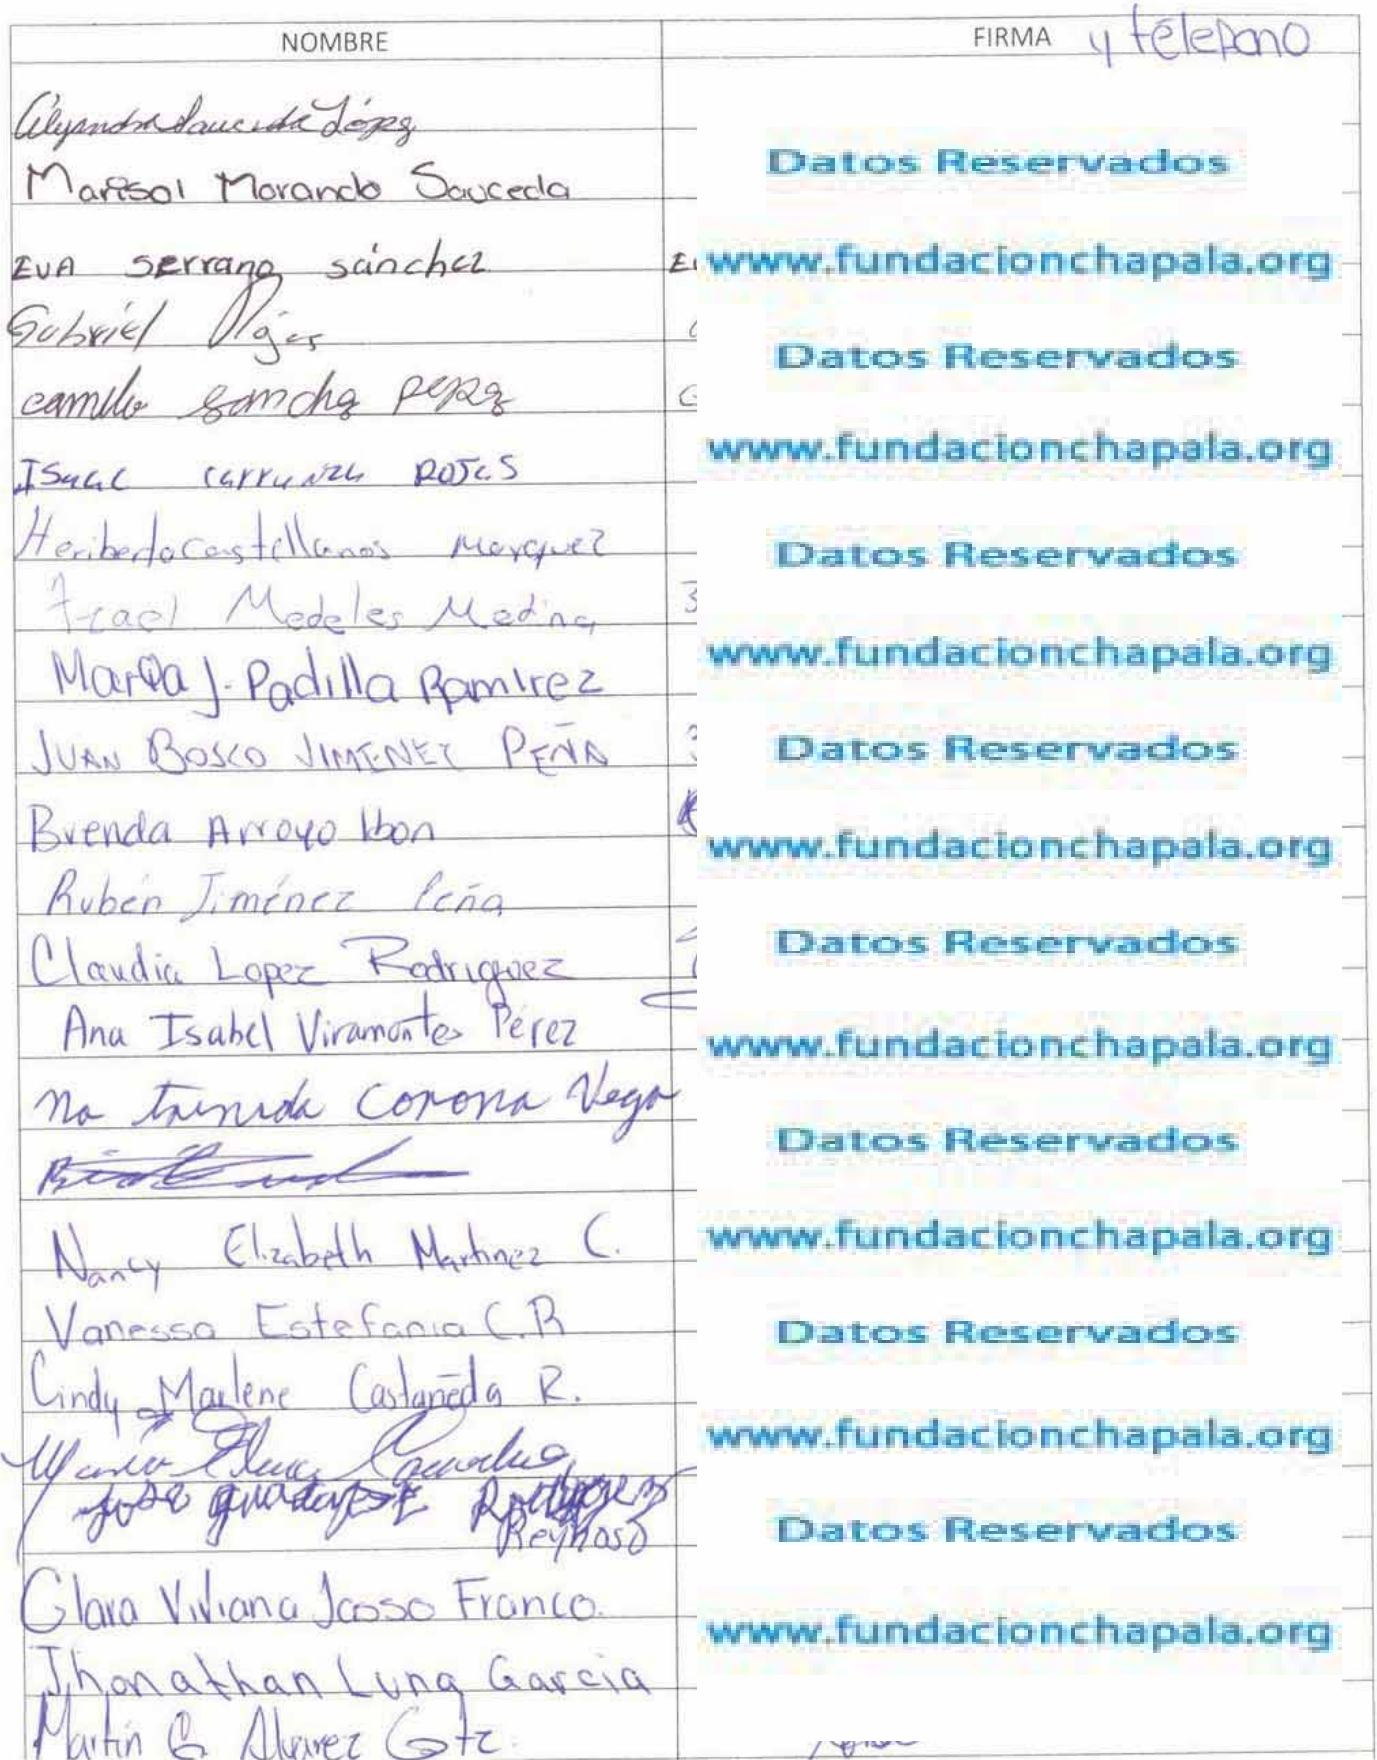 NOMBRE FIRMA y télefono
Alejandra Sauceda López
Datos Reservados
Marisol Morando Sauceda
EVA serrano sánchez
www.fundacionchapala.org
Gabriel
Datos Reservados
camilo sanchz perez
www.fundacionchapala.org
ISaac carranza ROJas
Heriberto Castellanos Marquez
Datos Reservados
Medeles Medina
www.fundacionchapala.org
Martha J. Padilla Ramirez
JUAN BOSCO JIMENEZ PEÑA
Datos Reservados
Brenda Arroyo
www.fundacionchapala.org
Rubén Jiménez Peña
Claudia Lopez Rodriguez
Datos Reservados
Ana Isabel Viramontes Pérez
www.fundacionchapala.org
Ma Corona Vega
Datos Reservados
Nancy Elizabeth Martinez C.
www.fundacionchapala.org
Vanessa Estefania C.R
Datos Reservados
Cindy Marlene Castañeda R.
www.fundacionchapala.org
María Elena
José guadalupe Rodriguez
Reynoso
Datos Reservados
Clara Viviana Jasso Franco.
www.fundacionchapala.org
Jhonathan Luna Garcia
Martín G. Alvarez Gtz.